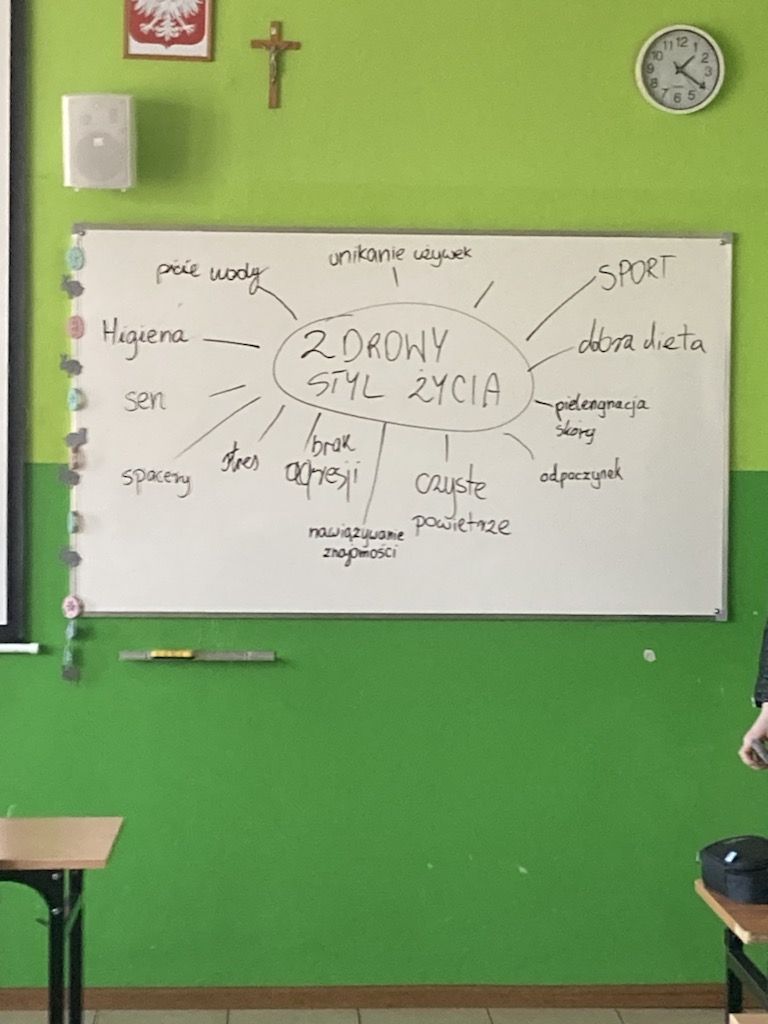 11 12 1
10 2
9 3
8 4
7 6 5
unikanie używek
picie wody
SPORT
Higiena
ZDROWY
dobra dieta
STYL ŻYCIA
sen
pielengnacja
skóry
brak
stres
agresji
odpoczynek
spacery
czyste
powietrze
nawiązywanie
znajomości